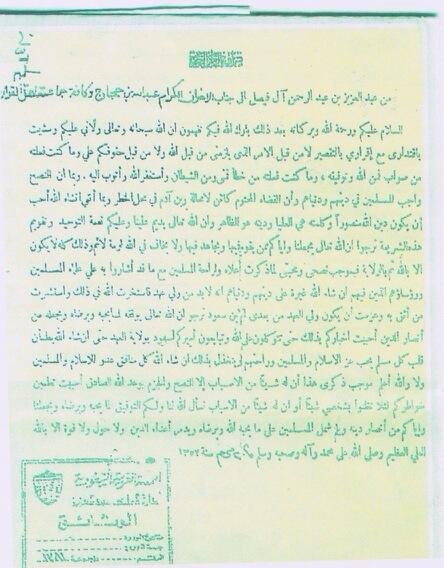 من عبد العزيز بن عبد الرحمن آل فيصل الى جناب الاخوان الكرام عبدالله بن وكافة جماعة
السلام عليكم ورحمة الله وبركاته بعد ذلك بارك الله فيكم تفهمون ان الله سبحانه وتعالى ولاني عليكم
باقتداري مع اقراري بالتقصير لا من قبل الأمر الذي يلزمني من قبل الله ولا من قبل حقوقكم علي وما كنت فعلته
من صواب فمن الله وتوفيقه وما كنت فعلته من خطأ فمني ومن الشيطان وأستغفر الله وأتوب اليه وبما ان النصح
واجب للمسلمين في دينهم ودنياهم وأن القضاء المحتوم كائن لا محالة وبن آدم في محل الخطر وبما أنني انشاء الله أحب
أن يكون دين الله منصوراً وكلمته هي العليا ودينه هو الظاهر وان الله تعالى يديم علينا وعليكم نعمة التوحيد وتقويم
هذه الشريعة نرجوا ان الله تعالى يجعلنا واياكم ممن يقوم بها ويجاهد فيها ولا يخاف في الله لومة لائم وذلك كله لا يكون
الا بالله ثم بالولاية فبموجب نصحي ومحبتي لما ذكرت أعلاه ولراحة المسلمين مع ما قد أشاروا به علي علماء المسلمين
ورؤساؤهم الذين فيهم ان شاء الله غيرة على دينهم ودنياهم انه لابد من ولي عهد فاستخرت الله في ذلك واستشرت
من أثق به وعزمت أن يكون ولي العهد من بعدي ابن سعود نرجو ان الله تعالى يوفقه لما يحبه ويرضاه ويجعله من
أنصار الدين أحببت اخباركم بذلك حتى تتوكلون على الله وتبايعون أميركم لسعود بولاية العهد حتى ان شاء الله يطمأن
قلب كل مسلم يحب عز الاسلام والمسلمين وراحتهم وينخذل بذلك ان شاء الله كل منافق عدو للاسلام والمسلمين
ولا والله أعلم موجب ذكرى هذا أن له شيئاً من الاسباب الا النصح والحزم بوعد الله الصادق أحببت تطمين
خواطركم لئلا تظنوا بشخصي شيئاً أو ان له شيئاً من الاسباب نسأل الله لنا ولكم التوفيق لما يحبه ويرضاه ويجعلنا
واياكم من أنصار دينه ويلم شمل المسلمين على ما يحبه الله ويرضاه ويدمر أعداء الدين ولا حول ولا قوة الا بالله
العلي العظيم وصلى الله على محمد وآله وصحبه وسلم محرم سنة ١٣٥٢